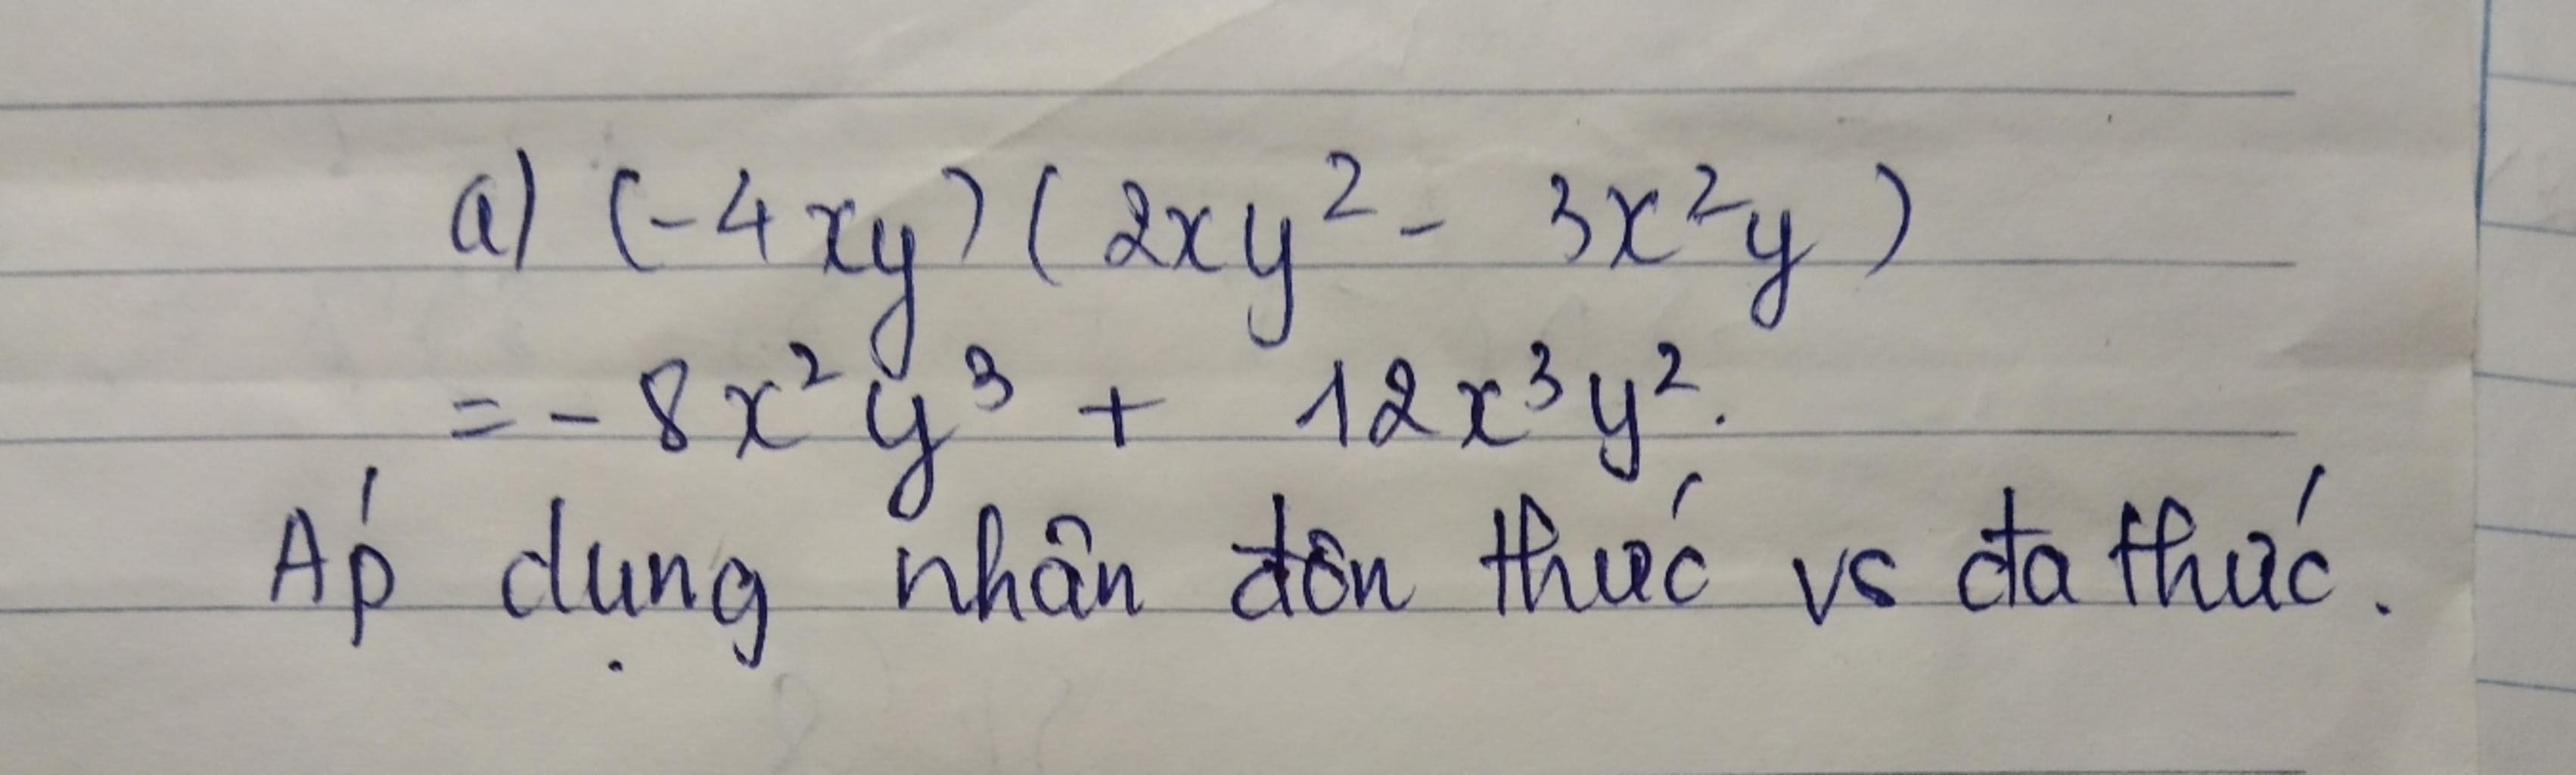 a) (-4xy)(2xy² - 3x²y)
= -8x²y³ + 12x³y².
Áp dụng nhân đơn thức vs đa thức.